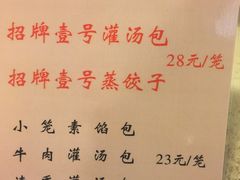 招牌壹号灌汤包
28元/笼
招牌壹号蒸饺子
小笼素馅包
牛肉灌汤包 23元/笼